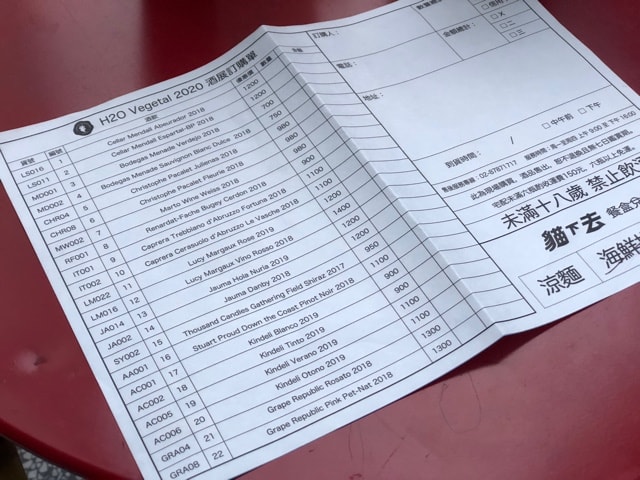 H2O Vegetal 2020 酒展訂購單
貨號 編號 酒款 優惠價 數量 小計
LS018 1 Cellar Mendall Abeurador 2018 1200
LS011 2 Cellar Mendall Espartal-BP 2018 1200
MD001 3 Bodegas Menade Verdejo 2018 700
MD002 4 Bodegas Menade Sauvignon Blanc Dulce 2018 750
CHR04 5 Christophe Pacalet Julienas 2018 980
CHR08 6 Christophe Pacalet Fleurie 2018 980
MW002 7 Marto Wine Weiss 2018 980
RF001 8 Renardat-Fache Bugey Cerdon 2018 900
IT001 9 Caprera Trebbiano d'Abruzzo Fortuna 2018 1100
IT002 10 Caprera Cerasuolo d'Abruzzo Le Vasche 2018 1100
LM022 11 Lucy Margaux Rosa 2019 1200
LM016 12 Lucy Margaux Vino Rosso 2018 1400
JA014 13 Jauma Hola Nuria 2019 1200
JA002 14 Jauma Danby 2018 1200
SY002 15 Thousand Candies Gathering Field Shiraz 2017 950
AA001 16 Stuart Proud Down the Coast Pinot Noir 2018 1100
AC001 17 Kindeli Blanco 2019 900
AC002 18 Kindeli Tinto 2019 1100
AC005 19 Kindeli Verano 2019 1100
AC006 20 Kindeli Otono 2019 1100
GRA04 21 Grape Republic Rosato 2018 1300
GRA08 22 Grape Republic Pink Pet-Nat 2018 1300
訂購人：
數量總計
金額總計：
□信用
□X
□二
□三
電話：
地址：
到貨時間： / □中午前 □下午
售後服務專線：02-87871717 服務時間：周一至周五 上午9:00 至 下午18:00
此為現場購買，酒品售出，恕不退換且無七日鑑賞期。
宅配未滿六瓶酌收運費150元，六瓶以上免運。
未滿十八歲 禁止飲
貓下去 餐食兌
涼麵 海鮮